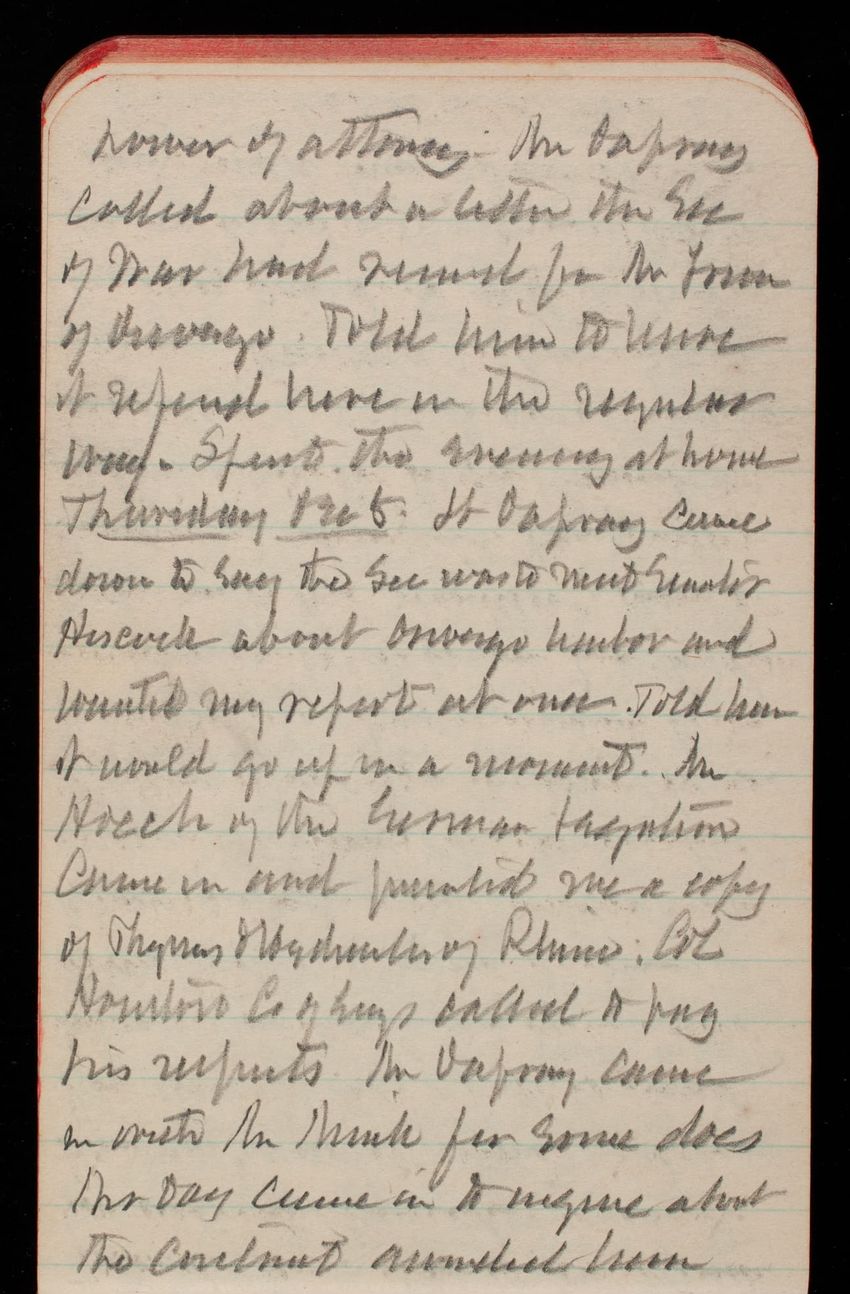 power of attorney. Mr Dapray
called about a letter the Sec
of War had received from
of Oswego. Told him to have
it referred here in the regular
way. Spent the evening at home
Thursday Dec 5. Lt Dapray came
down to say the Sec was to meet Senator
Hiscock about Oswego harbor and
wanted my report at once. Told him
it would go up in a moment. Mr
of the German Legation
came in and presented me a copy
of Rhine. Col
of Engs called to pay
his respects Mr Dapray came
in with Mr for some docs
Mr Day came in to inquire about
the Contract awarded him